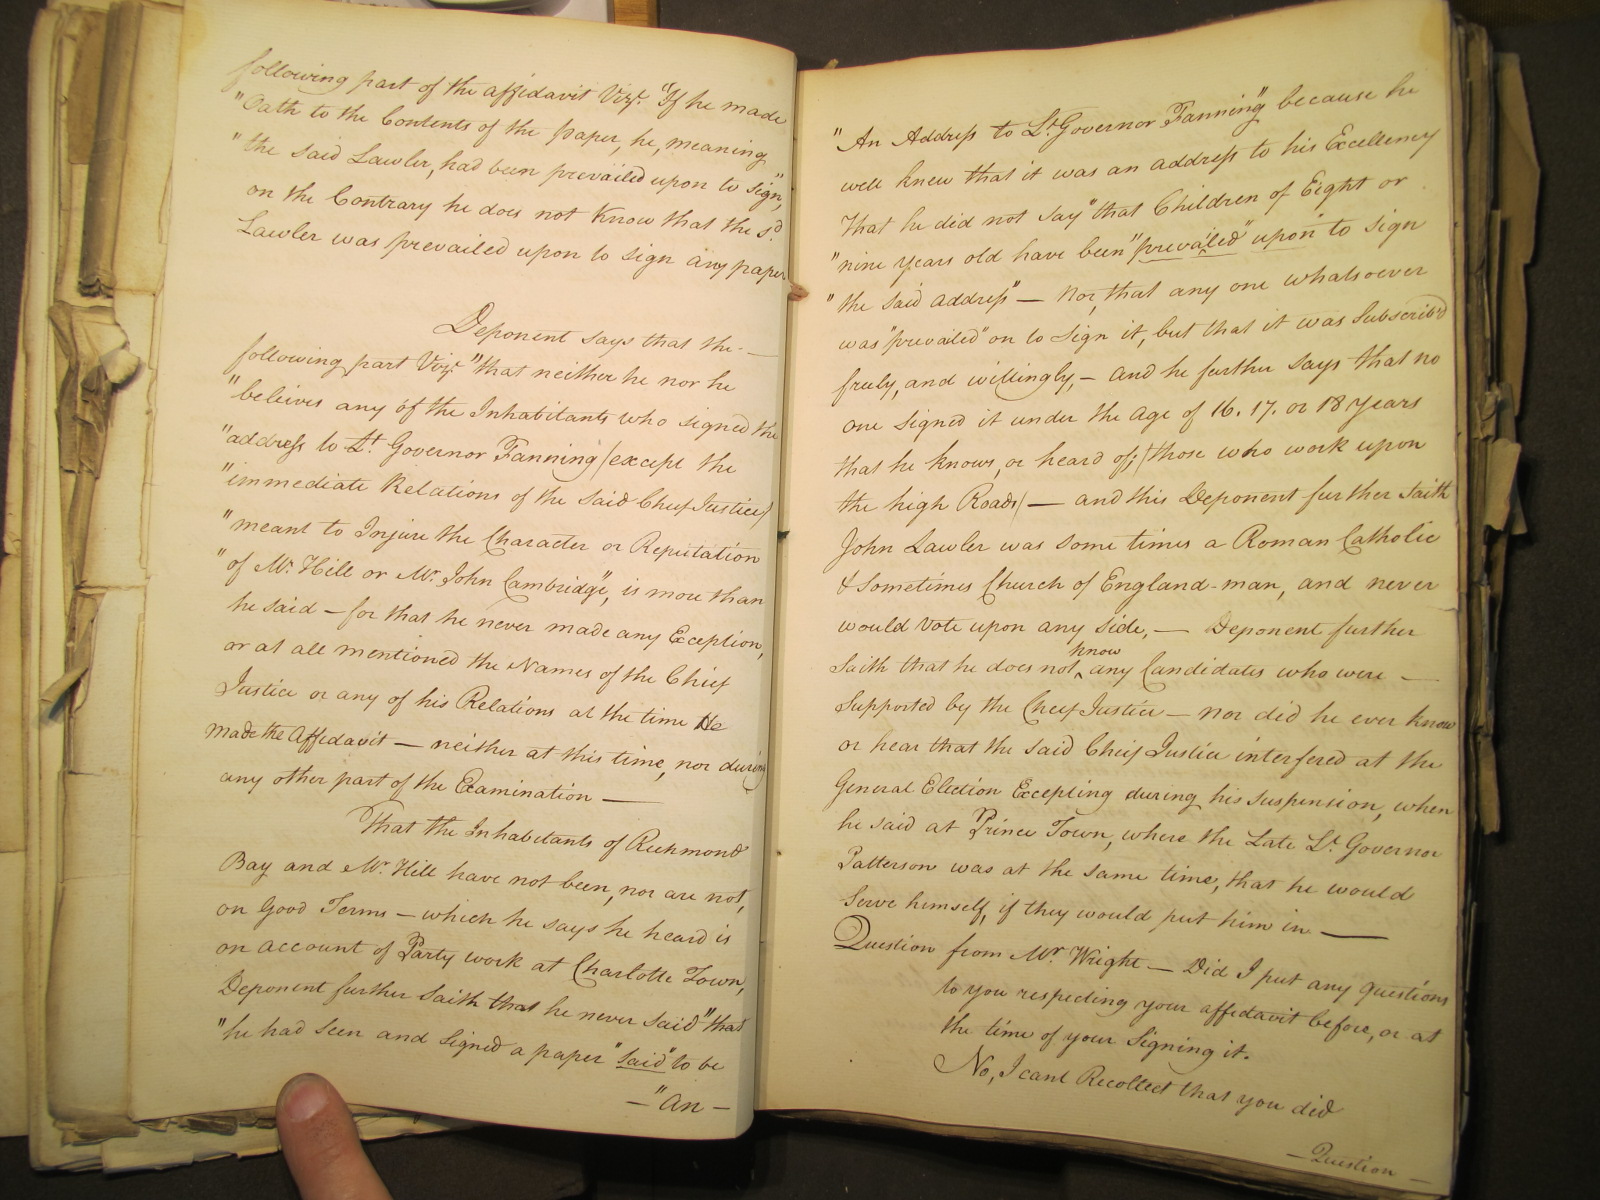 following part of the affidavit Vizt. "If he made
"Oath to the Contents of the paper, he, meaning
"the said Lawler, had been prevailed upon to sign",
on the Contrary he does not Know that the sd.
Lawler was prevailed upon to sign any paper
Deponent says that the —
following part Vizt. "that neither he nor he
"beleives any of the Inhabitants who signed the
"address to Lt. Governor Fanning (except the
"immediate Relations of the said Cheif Justice)
"meant to Injure the Character or Reputation
"of Mr. Hill or Mr. John Cambridge", is more than
he said — for that he never made any Exception,
or at all mentioned the Names of the Chief
Justice or any of his Relations at the time He
made the Affidavit — neither at this time, nor during
any other part of the Examination —
That the Inhabitants of Richmond
Bay and Mr. Hill have not been, nor are not,
on Good Terms — which he says he heard is
on account of Party work at Charlotte Town,
Deponent further Saith that he never said "that
"he had seen and signed a paper "said" to be
— "An —
"An Address to Lt. Governor Fanning" because he
well knew that it was an address to his Excellency
That he did not say "that Children of Eight or
"nine years old have been "prevailed" upon" to sign
"the said address" — Nor, that any one whatsoever
was "prevailed" on to sign it, but that it was Subscrib'd
freely, and willingly, — and he further says that no
one signed it under the age of 16. 17. or 18 years
that he knows, or heard of; (those who work upon
the high Roads) — and this Deponent further saith
John Lawler was some times a Roman Catholic
& Sometimes Church of England-man, and never
would vote upon any side, — Deponent further
Saith that he does not know any Candidates who were —
Supported by the Cheif Justice — nor did he ever know
or hear that the said Cheif Justice interfered at the
General Election Excepting during his suspension, when
he said at Prince Town, where the Late Lt. Governor
Patterson was at the same time, that he would
Serve himself, if they would put him in —
Question from Mr. Wright — Did I put any questions
to you respecting your affidavit before, or at
the time of your Signing it.
No, I cant Recollect that you did
— Question